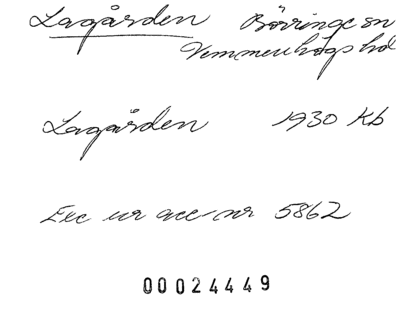 Lagården Börringe sn
Vemmenhögs hd
Lagården 1930 Kb
Exc ur acc-nr 5862
00024449